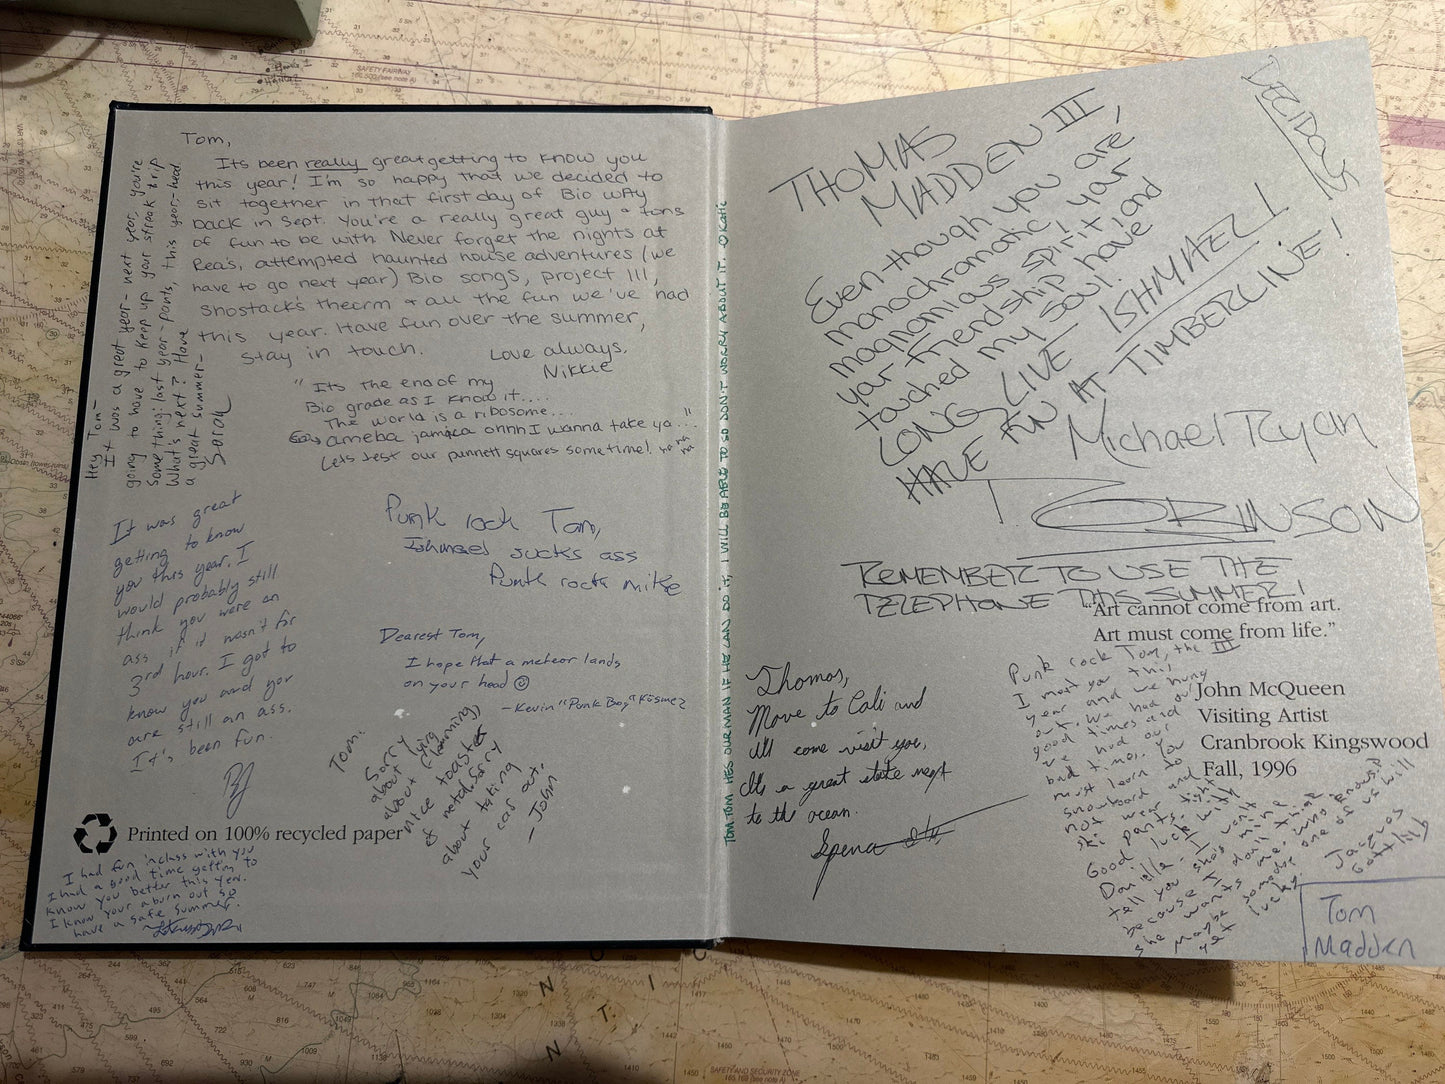 Tom,
Its been really great getting to know you
this year! I'm so happy that we decided to
sit together in that first day of Bio wAy
back in Sept. You're a really great guy + tons
of fun to be with Never forget the nights at
Rea's, attempted haunted house adventures (we
have to go next year) Bio songs, project III,
snostack's theorm + all the fun we've had
this year. Have fun over the summer,
stay in touch.
Love always,
Nikkie
"Its the end of my
Bio grade as I know it....
The world is a ribosome...
ameba jamaica ohhh I wanna take ya..."
Lets test our punnett squares sometime! ha ha ha
Hey Tom-
It was a great year- next year, you're
going to have to keep up your streak trip
something: last year-pants, this year,-head
What's next? Have
a great summer-
Sarah
It was great
getting to know
you this year. I
would probably still
think you were an
ass if it wasn't for
3rd hour. I got to
know you and you
are still an ass.
It's been fun.
Punk rock Tom,
Ishmael sucks ass
Punk rock mike
Dearest Tom,
I hope that a meteor lands
on your head ☺
-Kevin "Punk Boy" Kosmez
Tom:
Sorry
about lying
about cleaning,
nice toaster
& not
sorry
about taking
your car out.
-John
Printed on 100% recycled paper
I had fun in class with you
I had a good time getting to
know you better this year.
I know your a burn out so
have a safe summer.
TOM TOM HES OUR MAN IF HE CAN DO IT, I WILL BE ABLE TO SO DON'T WORRY ABOUT IT. Katie
THOMAS
MADDEN III,
Even though you are
monochromatic, your
magnomious spirit and
your friendship have
touched my soul!
LONG LIVE ISHMAEL!
HAVE FUN AT TIMBERLINE!
Michael Ryan
ROBINSON
REMEMBER TO USE THE
TELEPHONE THIS SUMMER!
"Art cannot come from art.
Art must come from life."
John McQueen
Visiting Artist
Cranbrook Kingswood
Fall, 1996
Thomas,
Move to Cali and
ill come visit you,
Its a great state next
to the ocean.
Punk rock Tom, the III
I met you this
year and we hung
out. We had our
good times and
we had our
bad times. You
must learn to
snowboard and
not wear tight
ski pants.
Good luck with
Danielle - I won't
tell you she's mine
because I don't think
she wants me. who knows?
maybe someday one of us will
get lucky.
Jacques
Gottlieb
Tom
Madden